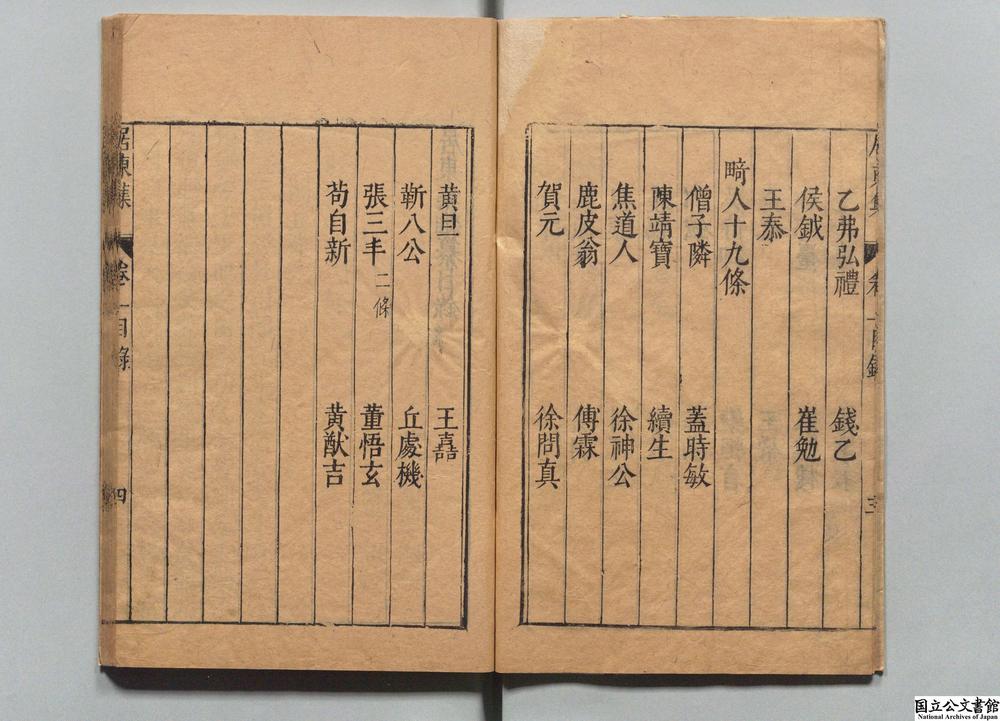 乙弗弘禮 錢乙
侯鉞 崔勉
王泰
畸人十九條
僧子隣 蓋時敏
陳靖寶 續生
焦道人 徐神公
鹿皮翁 傅霖
賀元 徐問真
黄旦 王嚞
靳八公 丘處機
張三丰 二條 董悟玄
苟自新 黄猷吉
居東集 卷一目錄 四
国立公文書館
National Archives of Japan